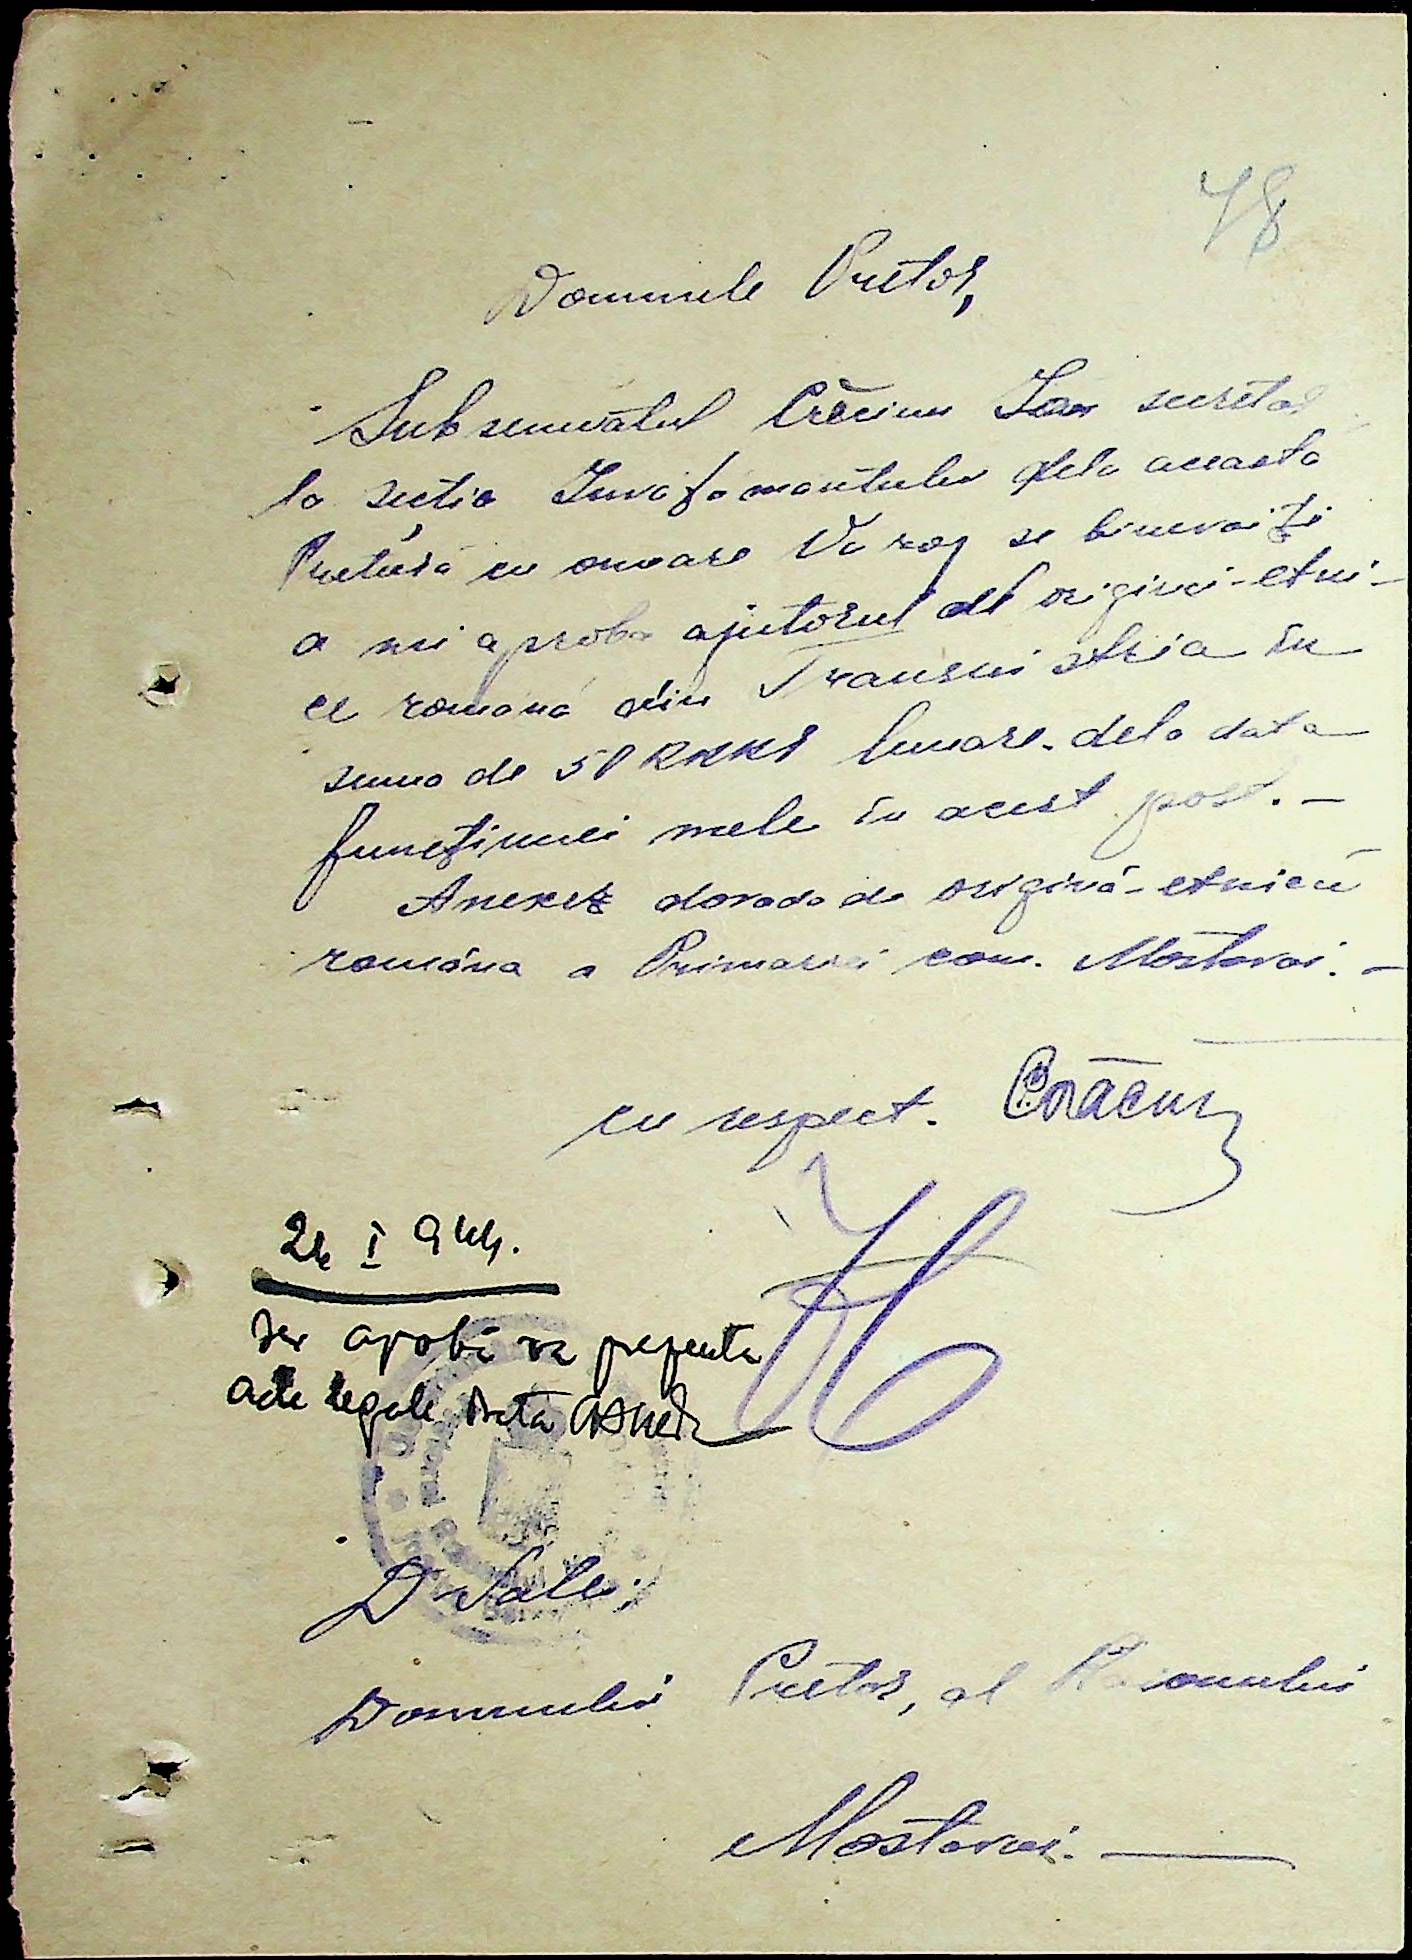 78
Domnule Pretor,
Subsemnatul Crăciun Ion secretar
la sectia Invațamantului dela aceasta
Pretură cu onoare Va rog se binevoiți
a mi aproba ajutorul de origină-etni-
ce română din Transnistria în
suma de 50 RKKS lunare. dela data
funcțiunei mele în acest post. —
Anexez dovada de origină-etnică
româna a Primariei com. Mostovoi. —
cu respect. Crăciun
24 I 944.
Se aprobă va prezenta
acte legale
D-Sale:
Domnului Pretor, al Raionului
Mostovoi. —